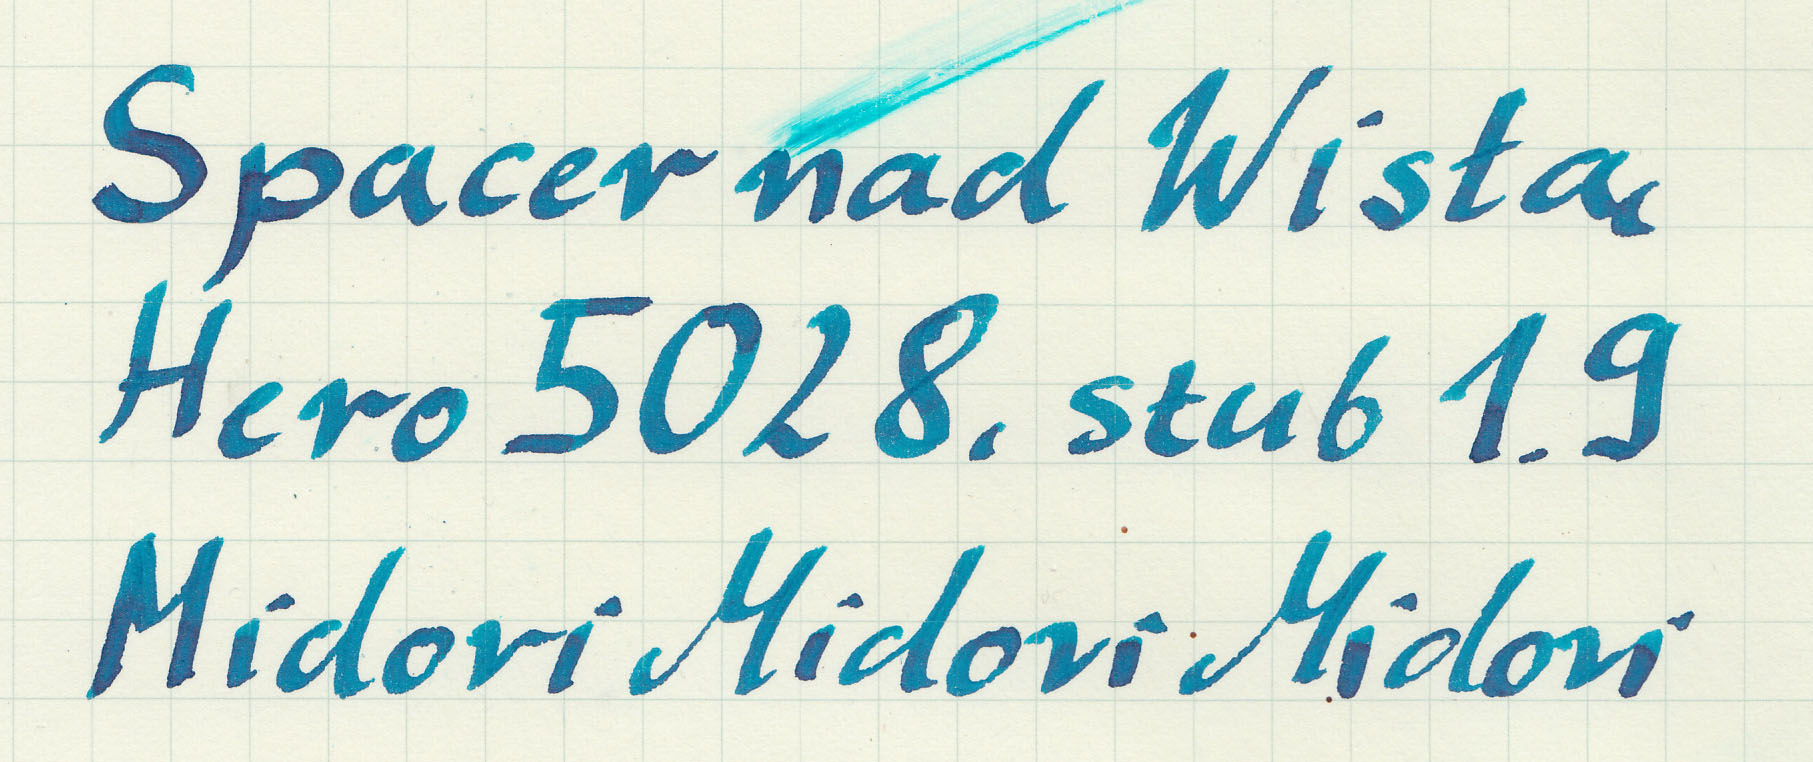 Spacer nad Wisłą
Hero 5028, stub 1.9
Midori Midori Midori